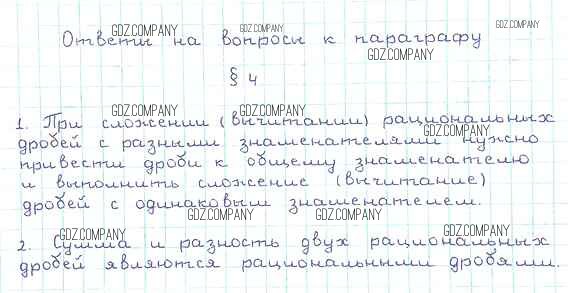 Ответы на вопросы к параграфу
§ 4
1. При сложении (вычитании) рациональных
дробей с разными знаменателями нужно
привести дроби к общему знаменателю
и выполнить сложение (вычитание)
дробей с одинаковым знаменателем.
2. Сумма и разность двух рациональных
дробей являются рациональными дробями.
GDZ.COMPANY
GDZ.COMPANY
GDZ.COMPANY
GDZ.COMPANY
GDZ.COMPANY
GDZ.COMPANY
GDZ.COMPANY
GDZ.COMPANY
GDZ.COMPANY
GDZ.COMPANY
GDZ.COMPANY